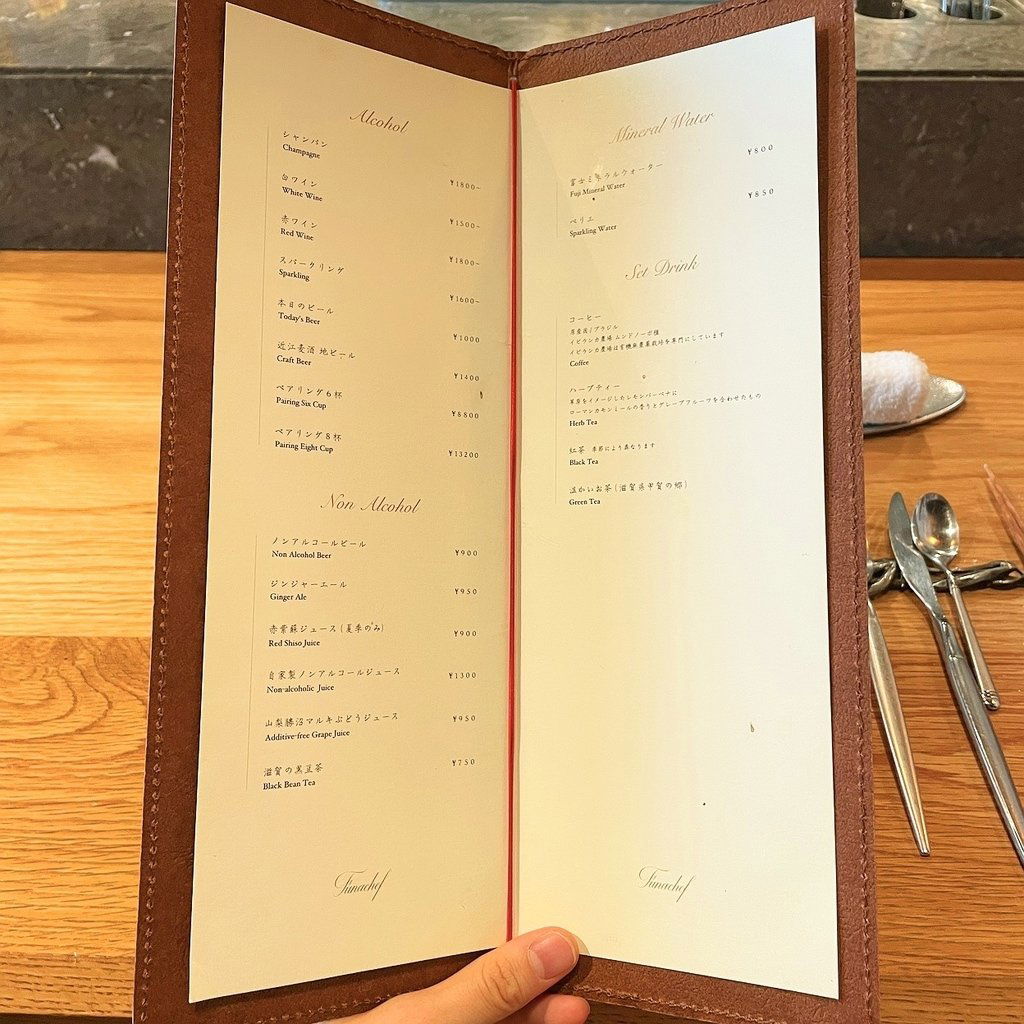 Alcohol
シャンパン
Champagne
¥1800~
白ワイン
White Wine
¥1500~
赤ワイン
Red Wine
¥1800~
スパークリング
Sparkling
¥1600~
本日のビール
Today's Beer
¥1000
近江麦酒 地ビール
Craft Beer
¥1400
ペアリング6杯
Pairing Six Cup
¥8800
ペアリング8杯
Pairing Eight Cup
¥13200
Non Alcohol
ノンアルコールビール
Non Alcohol Beer
¥900
ジンジャーエール
Ginger Ale
¥950
赤紫蘇ジュース(夏季のみ)
Red Shiso Juice
¥900
自家製ノンアルコールジュース
Non-alcoholic Juice
¥1300
山梨勝沼マルキぶどうジュース
Additive-free Grape Juice
¥950
滋賀の黒豆茶
Black Bean Tea
¥750
Funachef
Mineral Water
¥800
富士ミネラルウォーター
Fuji Mineral Water
¥850
ペリエ
Sparkling Water
Set Drink
コーヒー
原産国/ブラジル
イピランカ農場 ムンドノーボ種
イピランカ農場は有機無農薬栽培を専門にしています
Coffee
ハーブティー
草原をイメージしたレモンバーベナに
ローマンカモミールの香りとグレープフルーツを合わせたもの
Herb Tea
紅茶 季節により異なります
Black Tea
温かいお茶(滋賀県甲賀の郷)
Green Tea
Funachef